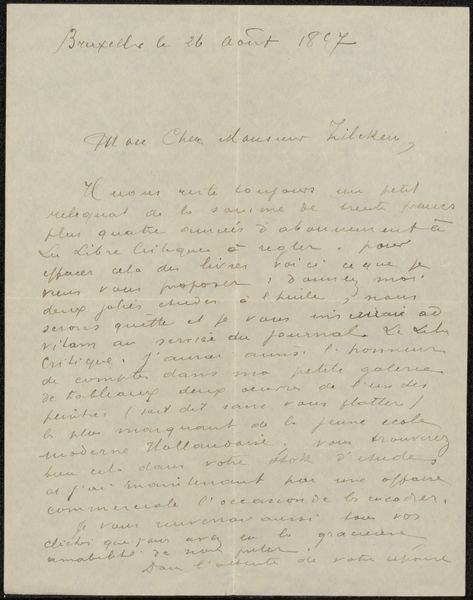 Bruxelles le 26 Août 1897
Mon Cher Monsieur Zilcken,
Il nous reste toujours un petit
reliquat de la somme de trente francs
plus quatre années d'abonnement à
La Libre Critique à régler. pour
effacer cela des livres voici ce que je
viens vous proposer: donnez moi
deux jolies études à l'huile, nous
serons quitte et je vous inscrirai ad
vitam au service du journal La Libre
Critique. J'aurai aussi l'honneur
de compter dans ma petite galerie
de tableaux deux œuvres de l'un des
peintres (soit dit sans vous flatter)
le plus marquant de la jeune école
moderne Hollandaise. Vous trouverez
bien cela dans votre stock d'études
et j'ai maintenant par une affaire
commerciale l'occasion de les encadrer.
Je vous renverrai aussi tous vos
clichés que vous avez eu la gracieuse
amabilité de nous prêter.
Dans l'attente de votre réponse